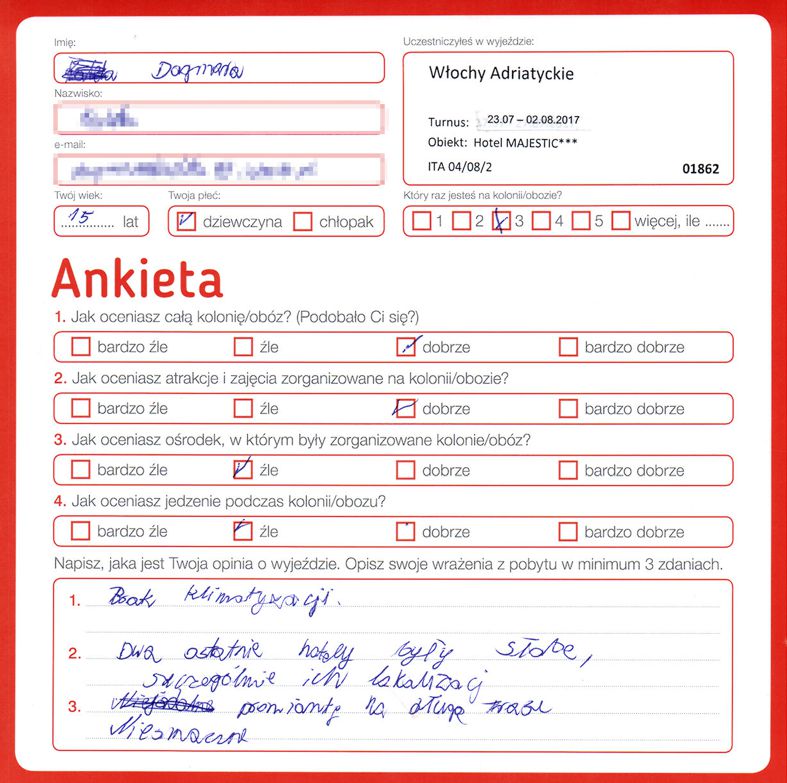 Imię:
Dagmara
Uczestniczyłeś w wyjeździe:
Włochy Adriatyckie
Turnus: 23.07 – 02.08.2017
Obiekt: Hotel MAJESTIC***
ITA 04/08/2 01862
Nazwisko:
e-mail:
Twój wiek: Twoja płeć:
15 lat dziewczyna chłopak
Który raz jesteś na kolonii/obozie?
1 2 3 4 5 więcej, ile .......
Ankieta
1. Jak oceniasz całą kolonię/obóz? (Podobało Ci się?)
bardzo źle źle dobrze bardzo dobrze
2. Jak oceniasz atrakcje i zajęcia zorganizowane na kolonii/obozie?
bardzo źle źle dobrze bardzo dobrze
3. Jak oceniasz ośrodek, w którym były zorganizowane kolonie/obóz?
bardzo źle źle dobrze bardzo dobrze
4. Jak oceniasz jedzenie podczas kolonii/obozu?
bardzo źle źle dobrze bardzo dobrze
Napisz, jaka jest Twoja opinia o wyjeździe. Opisz swoje wrażenia z pobytu w minimum 3 zdaniach.
1. Brak klimatyzacji.
2. Dwa ostatnie hotely były słabe,
szczególnie ich lokalizacj
3. prowiantę na długą trasę
Niesmaczne